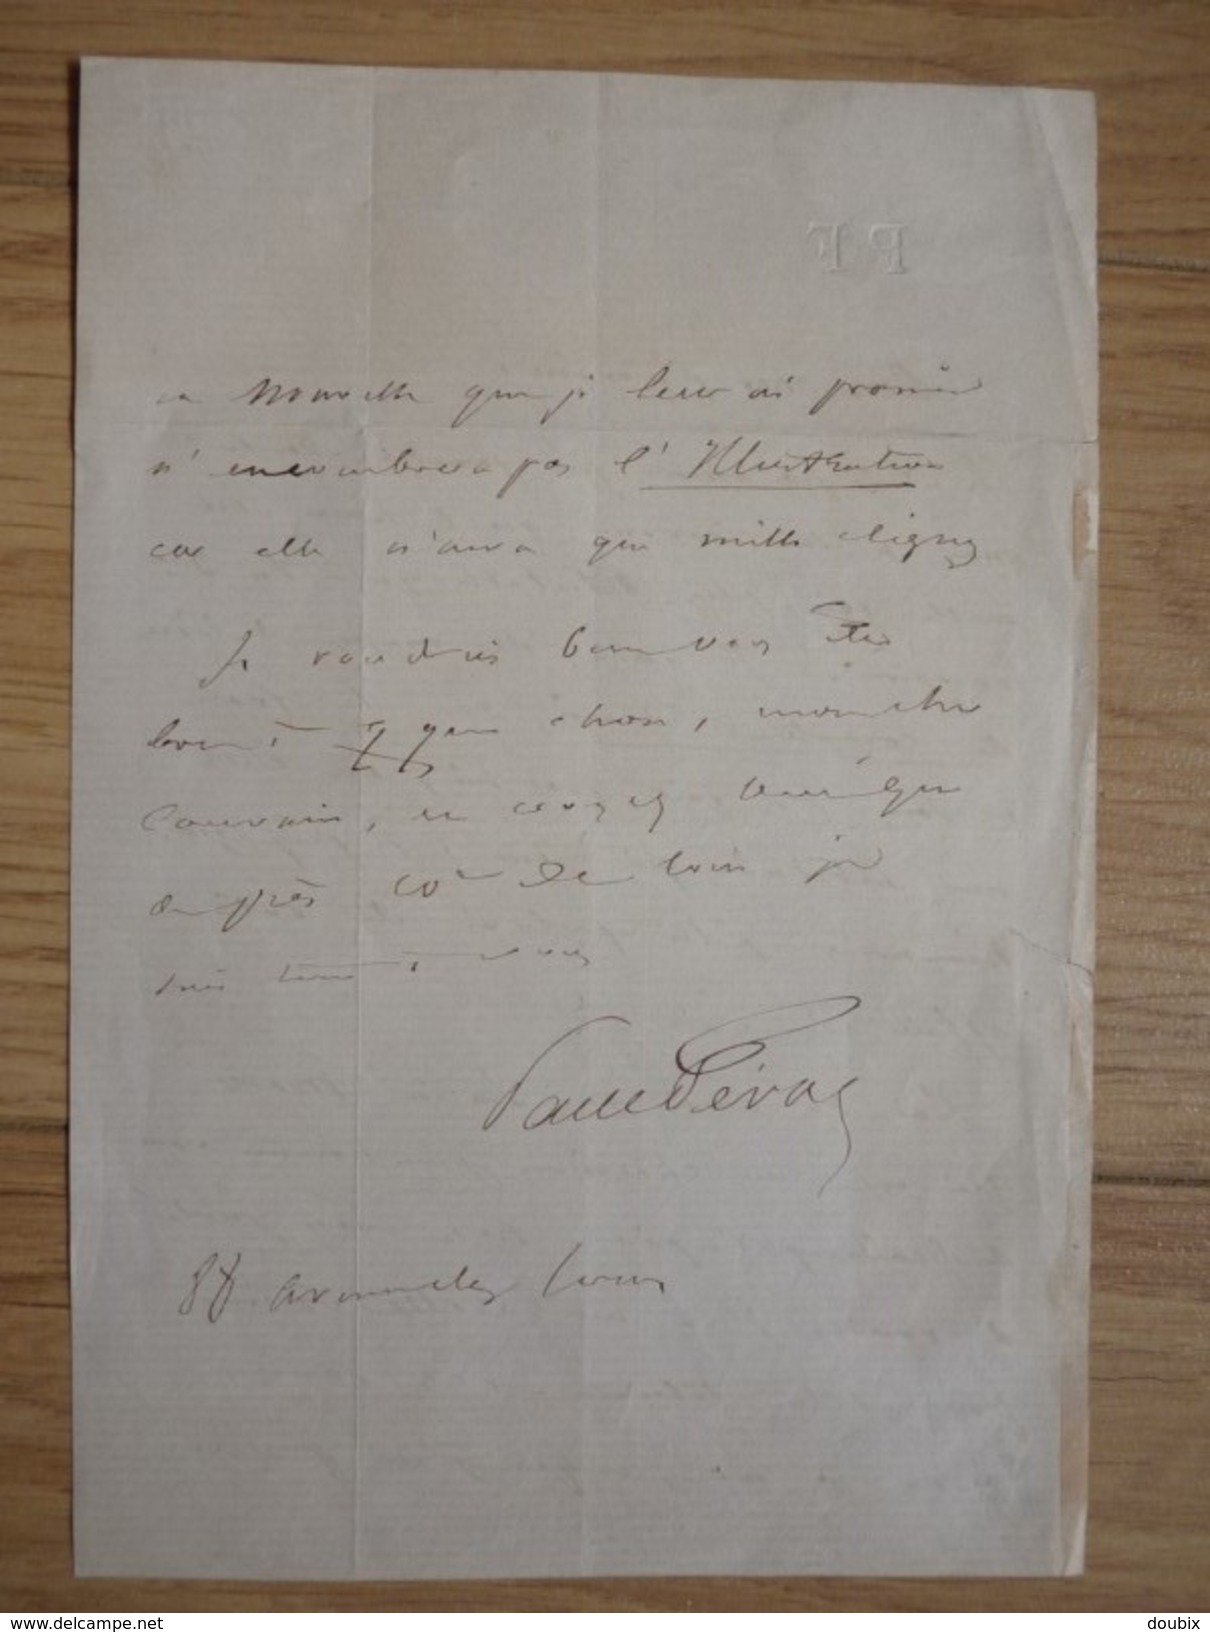 La Nouvelle que je leur ai promise
n'encombrera pas l'Illustration
car elle n'aura que mille lignes
Je voudrais bien vous être
bon à qque chose, mon cher
et croyez bien que
de près co͞ de loin je
suis tout à vous
Paul Féval
88 avenue des Ternes
https://www.delcampe.net
doubix